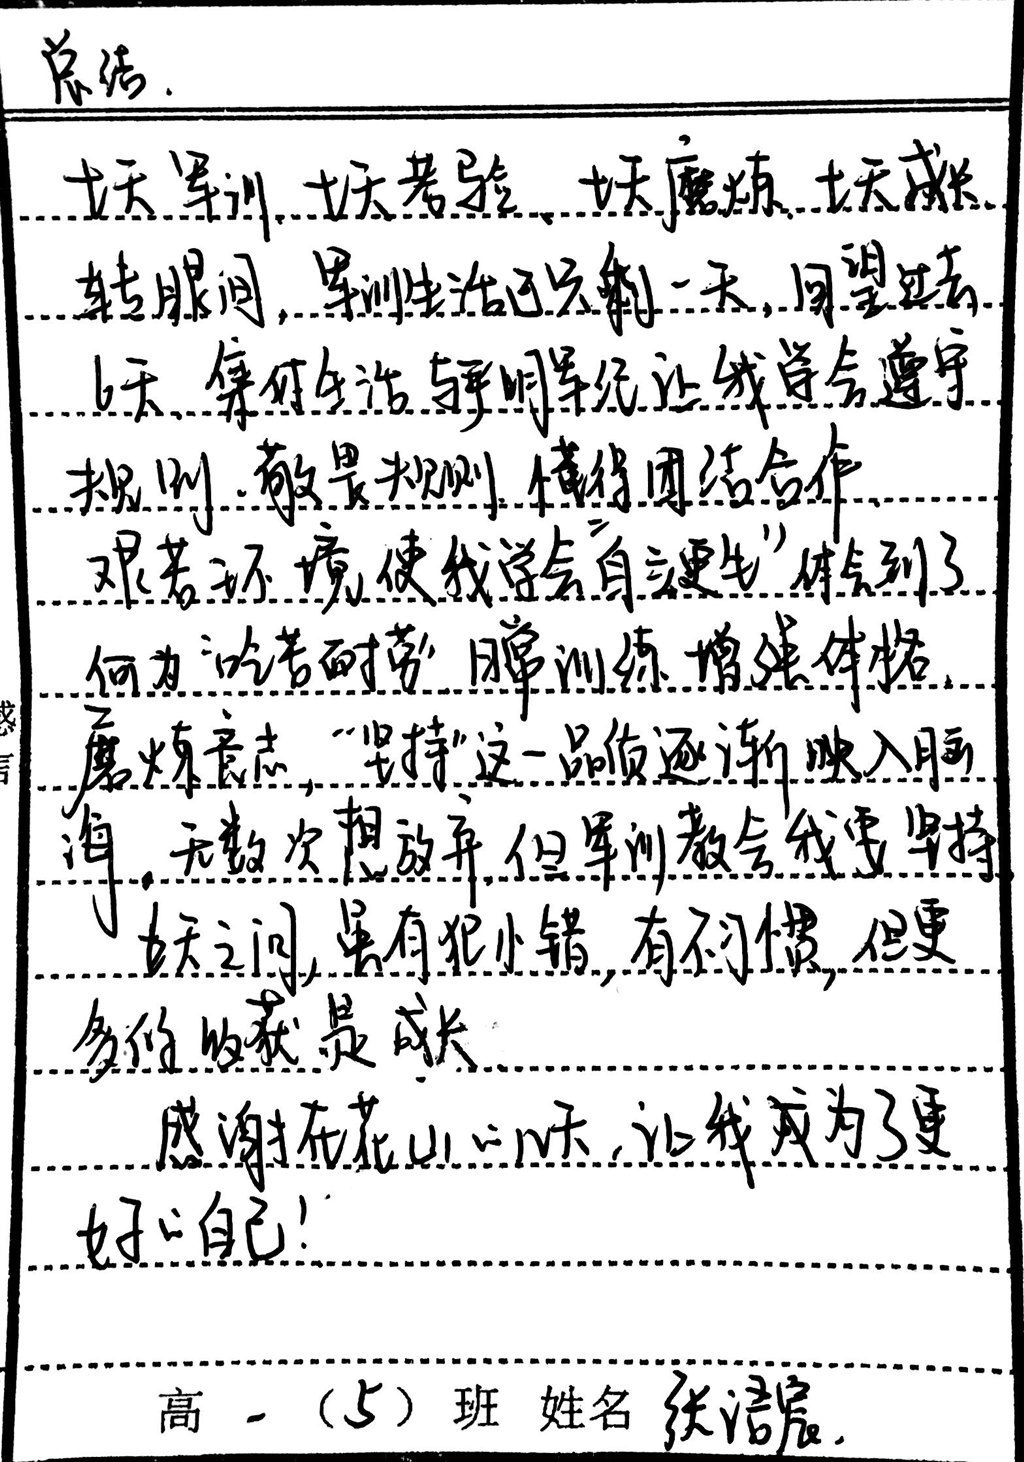 总结.
七天军训、七天考验、七天磨炼、七天成长、
转眼间,军训生活已只剩一天,回望过去
6天、集体生活与严明军纪让我学会遵守
规则、敬畏规则、懂得团结合作、
艰苦环境使我学会“自立更生”体会到了
何为“吃苦耐劳”日常训练增强体格、
磨炼意志,“坚持”这一品质逐渐映入脑
海、无数次想放弃,但军训教会我要坚持
七天之间,虽有犯小错,有不习惯,但更
多的收获是成长
感谢在花山的八天,让我成为了更
好的自己!
高一(5)班 姓名 张语宸.
感言